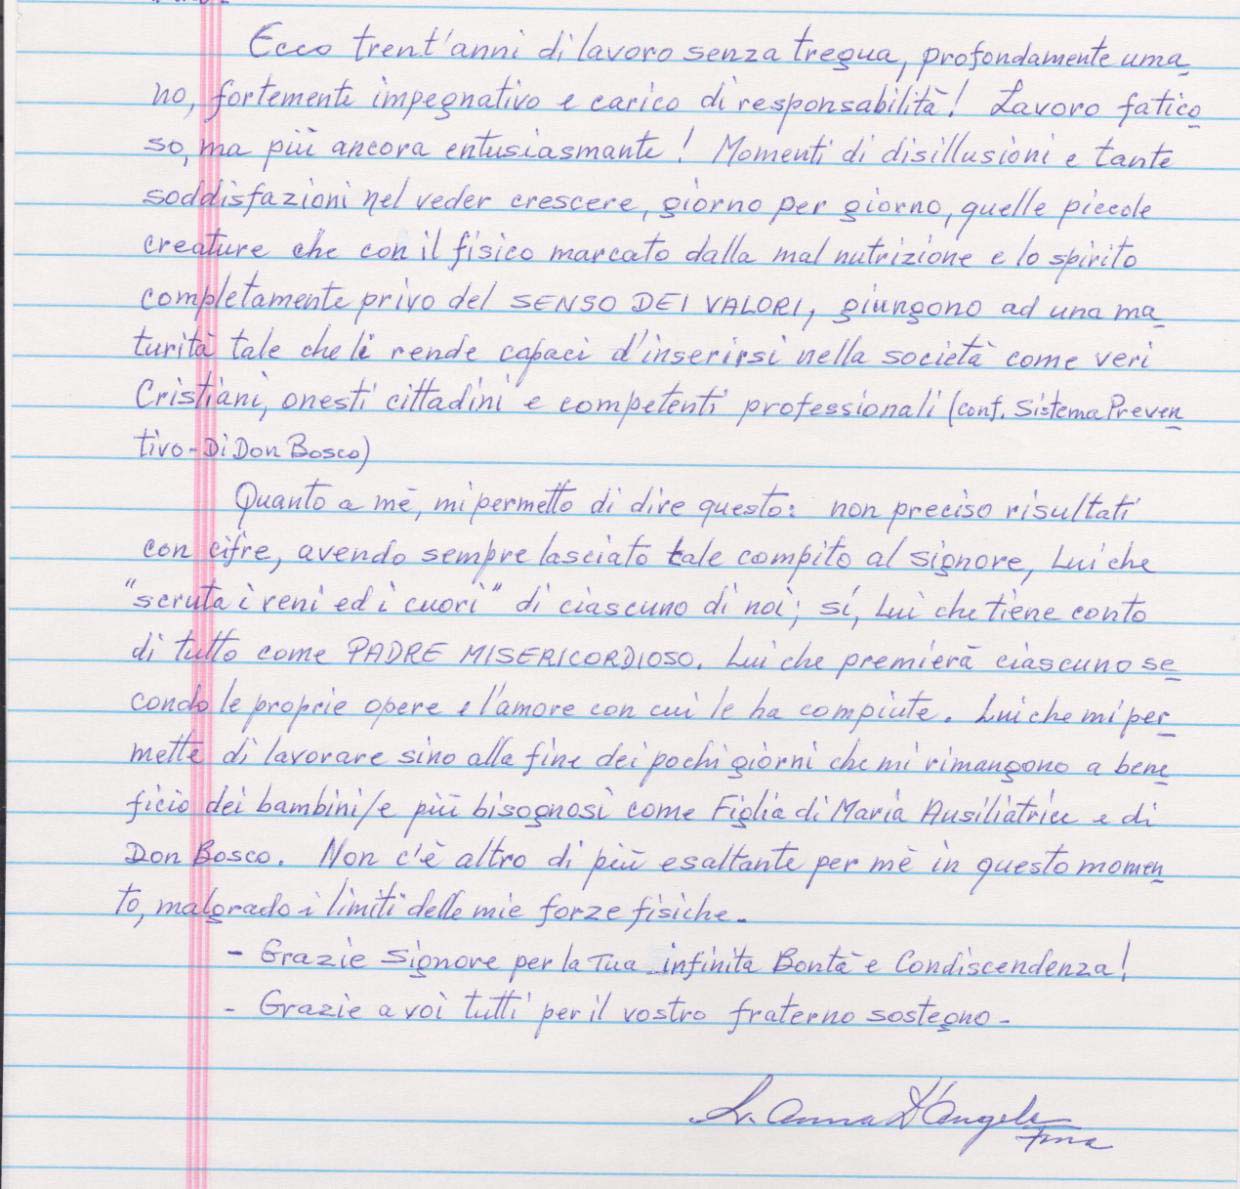 Ecco trent'anni di lavoro senza tregua, profondamente uma_
no, fortemente impegnativo e carico di responsabilità! Lavoro fatico_
so, ma più ancora entusiasmante! Momenti di disillusioni e tante
soddisfazioni nel veder crescere, giorno per giorno, quelle piccole
creature che con il fisico marcato dalla mal nutrizione e lo spirito
completamente privo del SENSO DEI VALORI, giungono ad una ma_
turità tale che li rende capaci d'inserirsi nella società come veri
Cristiani, onesti cittadini e competenti professionali (conf. Sistema Preven_
tivo - Di Don Bosco)
Quanto a mè, mi permetto di dire questo: non preciso risultati
con cifre, avendo sempre lasciato tale compito al Signore, Lui che
"scruta i reni ed i cuori" di ciascuno di noi; sí, Lui che tiene conto
di tutto come PADRE MISERICORDIOSO. Lui che premierà ciascuno se_
condo le proprie opere e l'amore con cui le ha compiute. Lui che mi per_
mette di lavorare sino alla fine dei pochi giorni che mi rimangono a bene_
ficio dei bambini/e più bisognosi come Figlia di Maria Ausiliatrice e di
Don Bosco. Non c'è altro di più esaltante per mè in questo momen_
to, malgrado i limiti delle mie forze fisiche.
- Grazie Signore per la Tua infinita Bontà e Condiscendenza!
- Grazie a voi tutti per il vostro fraterno sostegno -
Sr. Anna D'Angela
fma